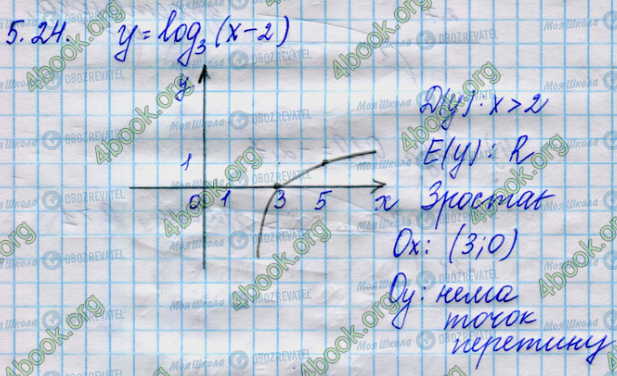 5.24. y = log₃(x-2)
y
D(y): x>2
1
E(y): R
0 1 3 5 x
Зростає
Ox: (3;0)
Oy: нема
точок
перетину
4book.org
Моя Школа
OBOZREVATEL